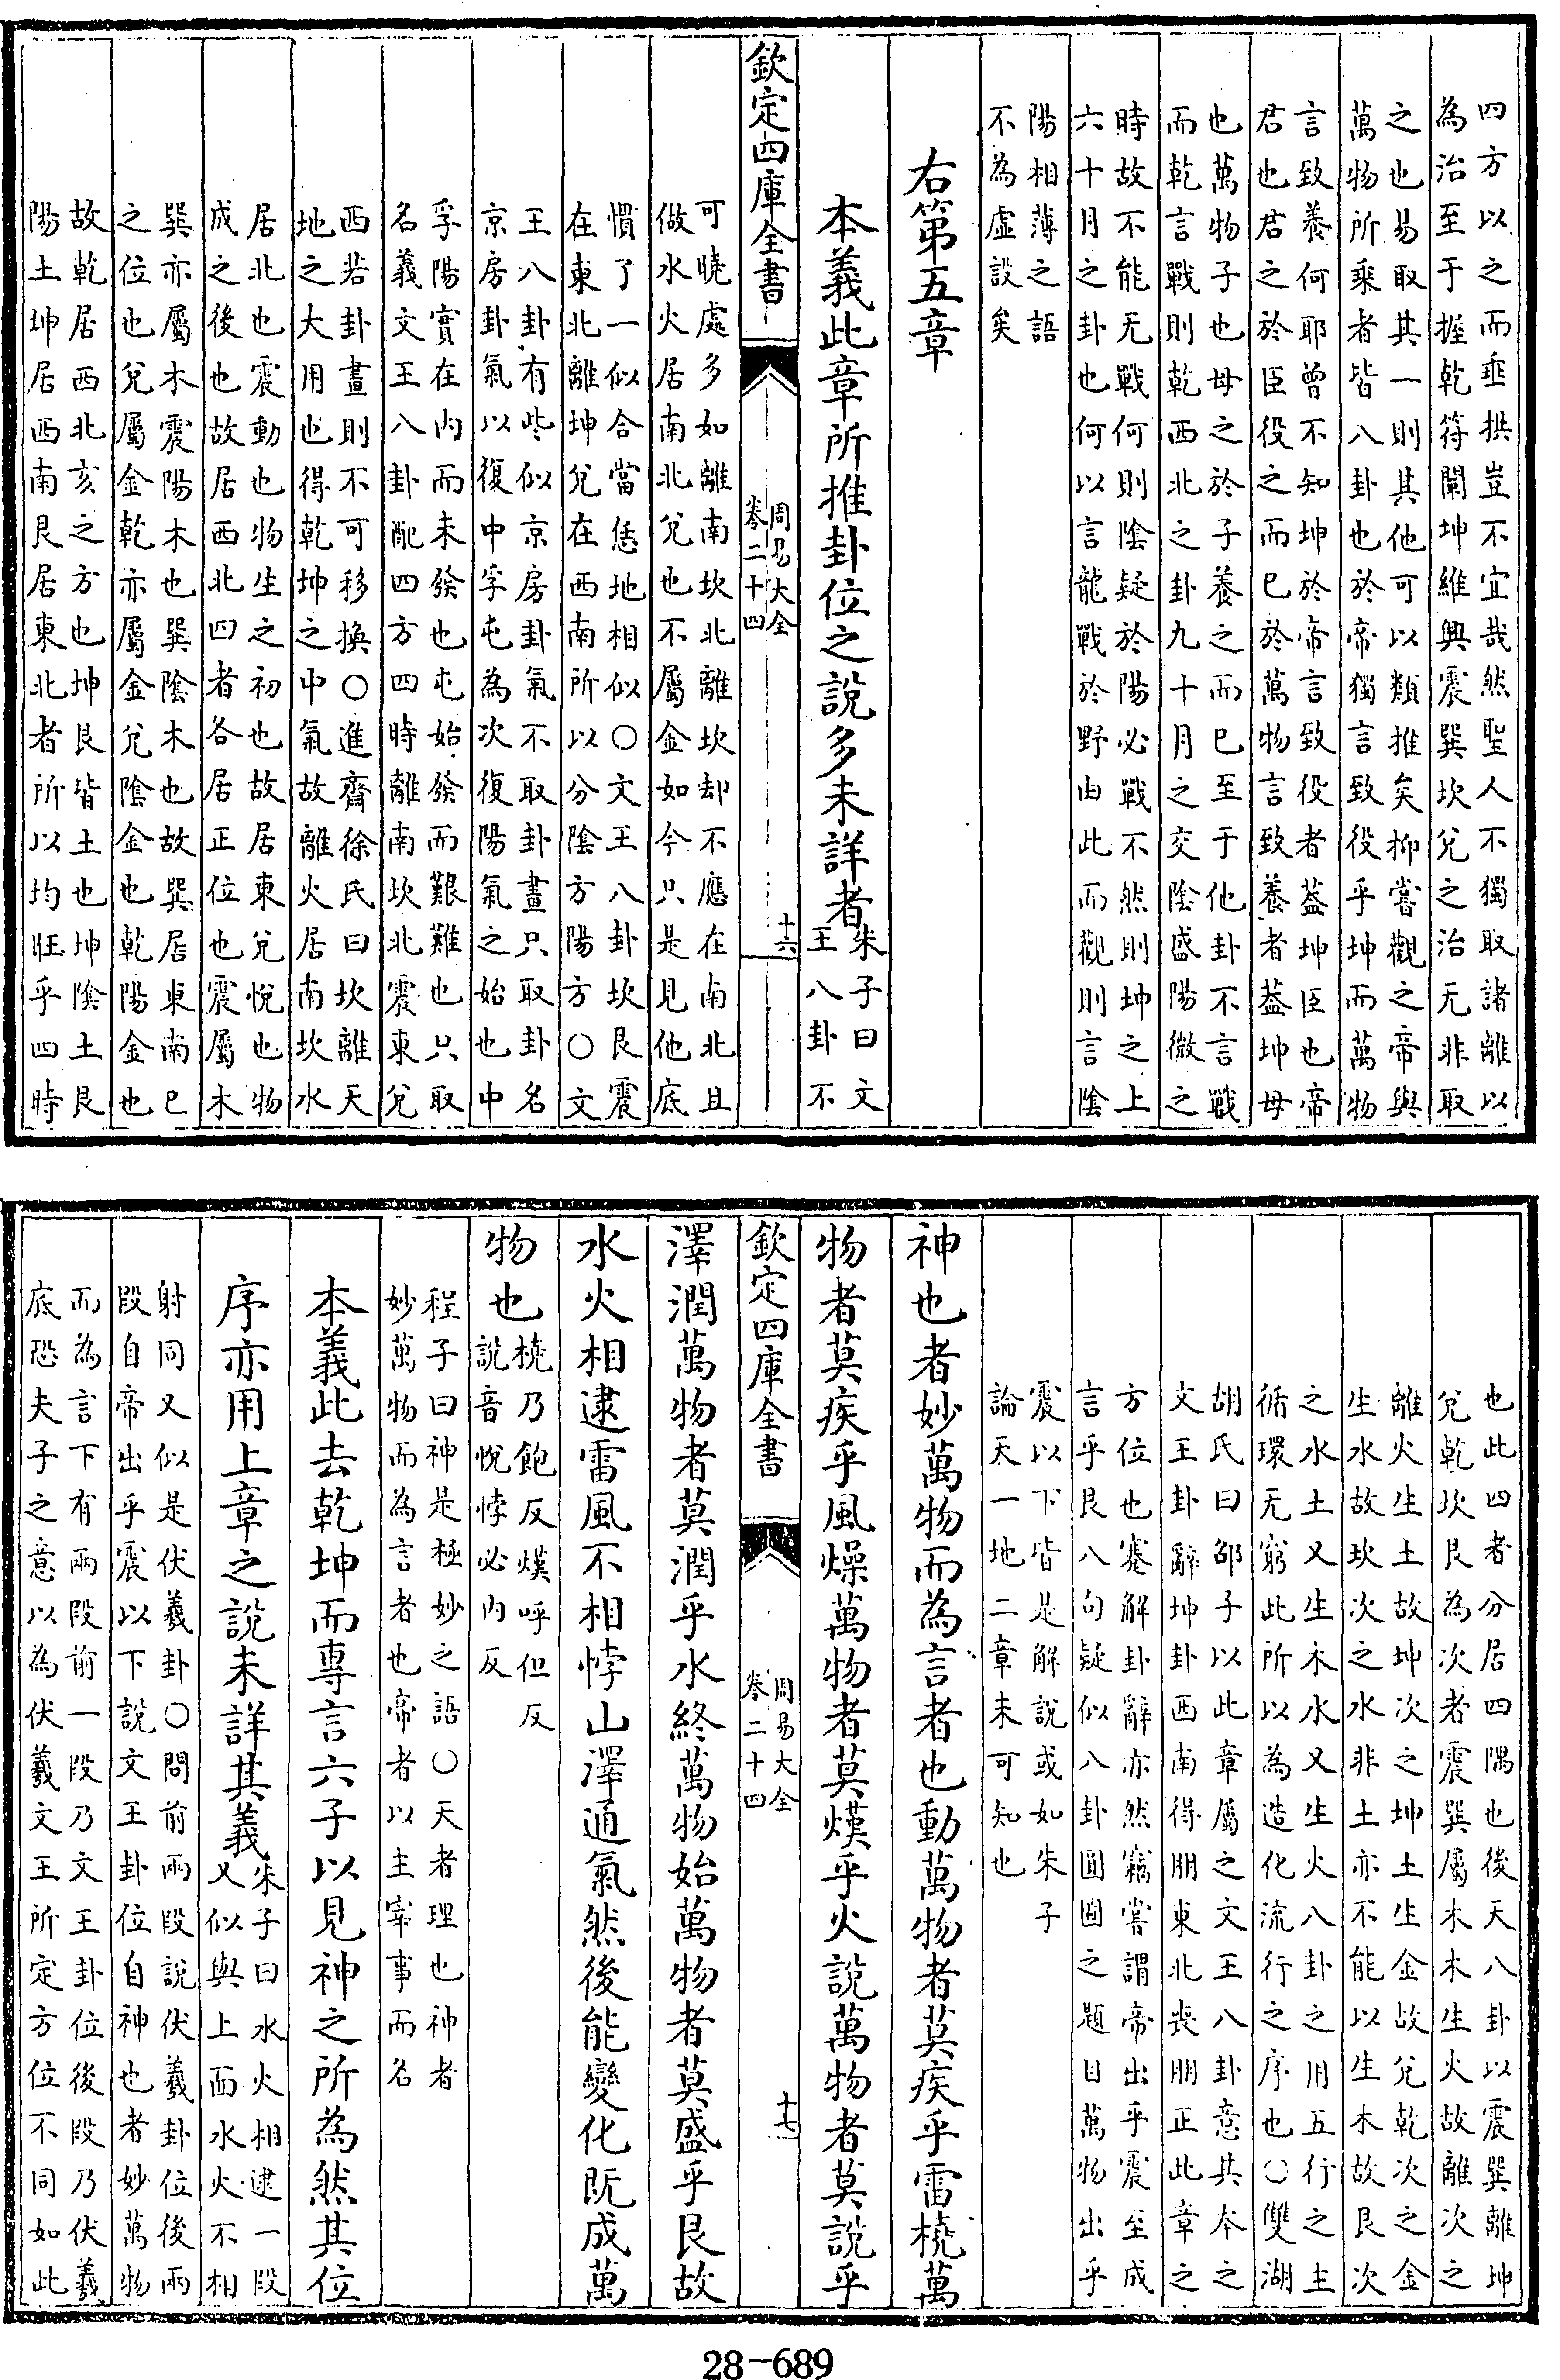 四方以之而垂拱豈不宜哉然聖人不獨取諸離以
為治至于握乾符闡坤維興震巽坎兌之治无非取
之也易取其一則其他可以類推矣抑嘗觀之帝與
萬物所乘者皆八卦也於帝獨言致役乎坤而萬物
言致養何耶曾不知坤於帝言致役者蓋坤臣也帝
君也君之於臣役之而已於萬物言致養者蓋坤母
也萬物子也母之於子養之而已至于他卦不言戰
而乾言戰則乾西北之卦九十月之交陰盛陽微之
時故不能无戰何則陰疑於陽必戰不然則坤之上
六十月之卦也何以言龍戰於野由此而觀則言陰
陽相薄之語
不為虛設矣
右第五章
本義此章所推卦位之說多未詳者
朱子曰文
王八卦不
欽定四庫全書
周易大全
卷二十四
十六
可曉處多如離南坎北離坎却不應在南北且
做水火居南北兌也不屬金如今只是見他底
慣了一似合當恁地相似○文王八卦坎艮震
在東北離坤兌在西南所以分陰方陽方○文
王八卦有些似京房卦氣不取卦畫只取卦名
京房卦氣以復中孚屯為次復陽氣之始也中
孚陽實在內而未發也屯始發而艱難也只取
名義文王八卦配四方四時離南坎北震東兌
西若卦畫則不可移換○進齋徐氏曰坎離天
地之大用也得乾坤之中氣故離火居南坎水
居北也震動也物生之初也故居東兌悅也物
成之後也故居西北四者各居正位也震屬木
巽亦屬木震陽木也巽陰木也故巽居東南巳
之位也兌屬金乾亦屬金兌陰金也乾陽金也
故乾居西北亥之方也坤艮皆土也坤陰土艮
陽土坤居西南艮居東北者所以均旺乎四時
也此四者分居四隅也後天八卦以震巽離坤
兌乾坎艮為次者震巽屬木木生火故離次之
離火生土故坤次之坤土生金故兌乾次之金
生水故坎次之水非土亦不能以生木故艮次
之水土又生木木又生火八卦之用五行之主
循環无窮此所以為造化流行之序也○雙湖
胡氏曰邵子以此章屬之文王八卦意其本之
文王卦辭坤卦西南得朋東北喪朋正此章之
方位也蹇解卦辭亦然竊嘗謂帝出乎震至成
言乎艮八句疑似八卦圓圖之題目萬物出乎
震以下皆是解說或如朱子
論天一地二章未可知也
神也者妙萬物而為言者也動萬物者莫疾乎雷橈萬
物者莫疾乎風燥萬物者莫熯乎火說萬物者莫說乎
欽定四庫全書
周易大全
卷二十四
十七
澤潤萬物者莫潤乎水終萬物始萬物者莫盛乎艮故
水火相逮雷風不相悖山澤通氣然後能變化既成萬
物也
橈乃飽反熯呼但反
說音悅悖必內反
程子曰神是極妙之語○天者理也神者
妙萬物而為言者也帝者以主宰事而名
本義此去乾坤而專言六子以見神之所為然其位
序亦用上章之說未詳其義
朱子曰水火相逮一段
又似與上面水火不相
射同又似是伏羲卦○問前兩段說伏羲卦位後兩
段自帝出乎震以下說文王卦位自神也者妙萬物
而為言下有兩段前一段乃文王卦位後段乃伏羲
底恐夫子之意以為伏羲文王所定方位不同如此
28-689